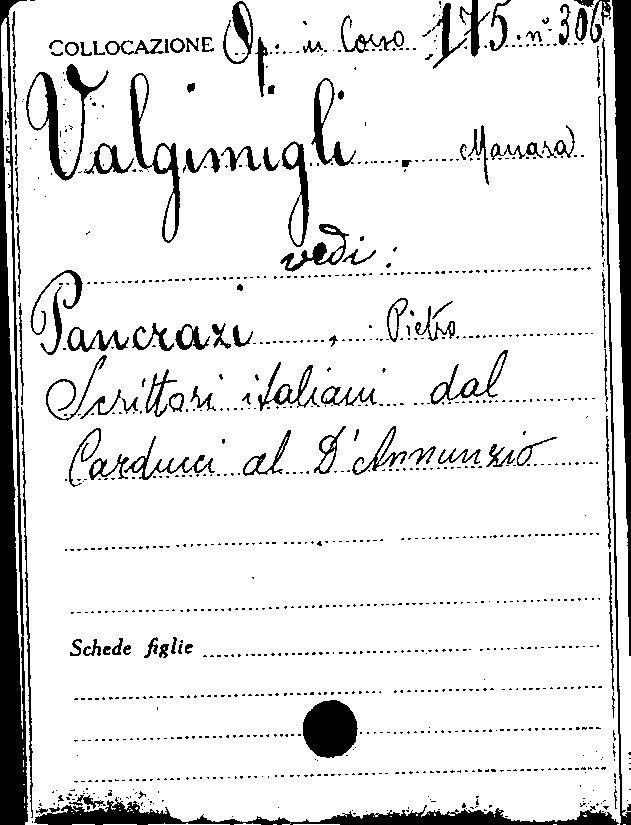 COLLOCAZIONE Op. in Corso 175. n° 306
Valgimigli. Manara
vedi:
Pancrazi, Pietro
Scrittori italiani dal
Carducci al D'Annunzio
Schede figlie